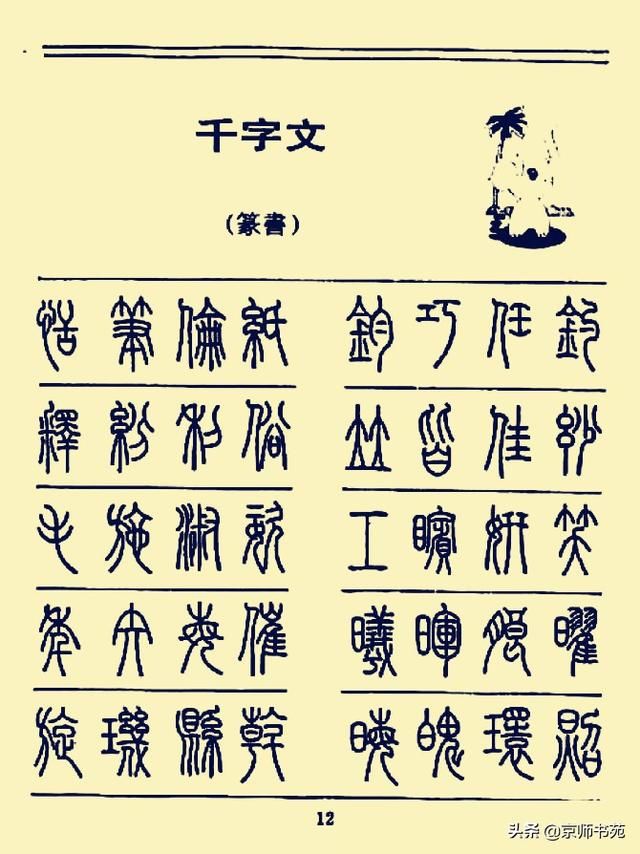 千字文
（篆書）
恬筆倫紙 鈞巧任釣
釋紛利俗 竝皆佳妙
毛施淑姿 工矉妍笑
年矢每催 曦暉朗曜
旋璣縣斡 晦魄環照
12
头条 @京师书苑